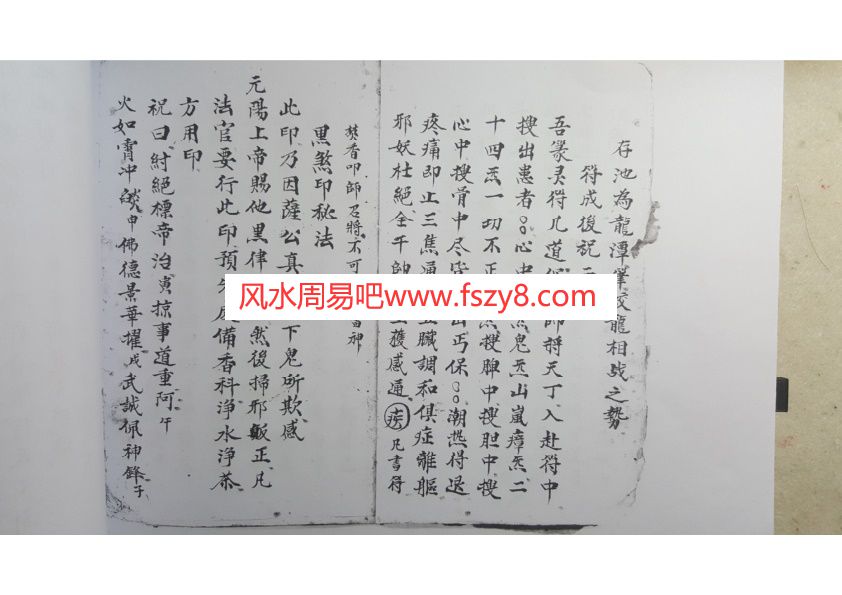 存池為龍潭筆蛟龍相战之势
符成後祝云
吾篆灵符 道 師将天丁入赴符中
搜出患者 心中 煞鬼炁山嵐瘴炁二
十四炁一切不正 炁搜脾中搜胆中搜
心中搜骨中尽 出丐保 潮热得退
疼痛即止三焦通 五臟調和俱症離軀
邪妖杜绝全干帥 獲感通 凡書符
焚香叩師召将不可 雷神
黑煞印秘法
此印乃因薩公真 下鬼所欺感
元陽上帝賜他黑律 然後掃邪皈正凡
法官要行此印預先 備香科净水净茶
方用印
祝曰 絕標帝治寅掠事道重阿午
火如霄冲 申佛德景華擢戌武誠佩神鋒子
风水周易吧www.fszy8.com